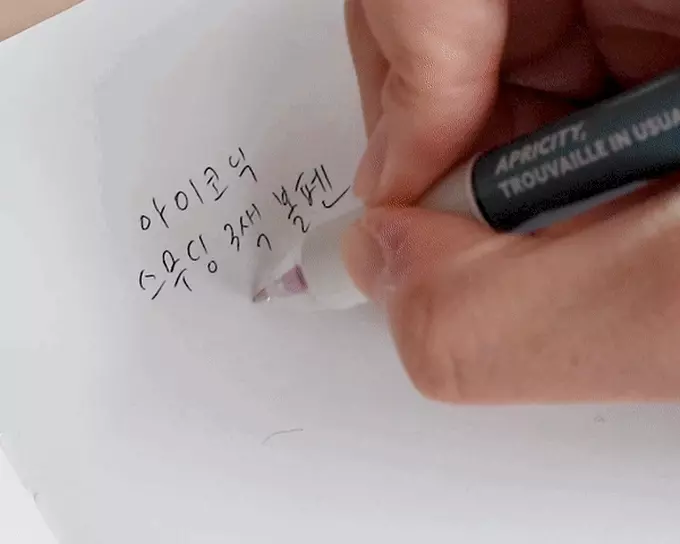 아이코닉
스무딩 3색 볼펜
APRICITY,
TROUVAILLE IN USUA